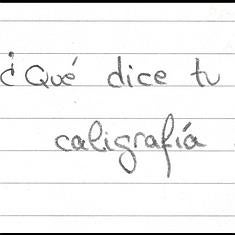 ¿Qué dice tu
caligrafía